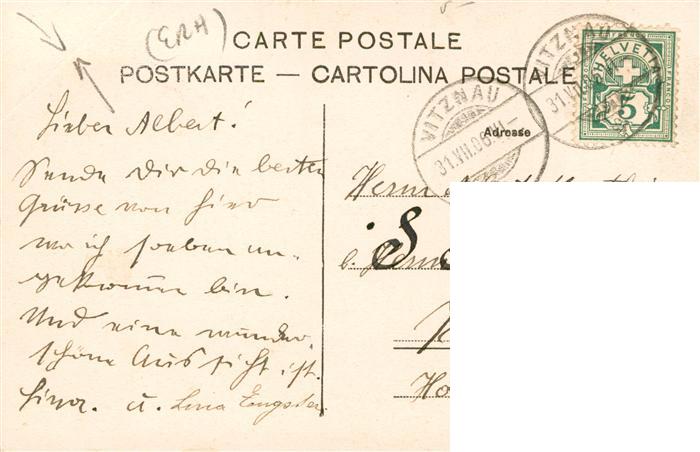 (ERA)
CARTE POSTALE
POSTKARTE — CARTOLINA POSTALE
HELVETIA
5
VITZNAU
31.VII.06.XI-
VITZNAU
31.VII.0
Adresse
Lieber Albert!
Sende Dir die besten
Grüsse von hier
wo ich soeben an-
gekommen bin.
Und eine wunder-
schöne Aussicht ist
hier. u. Lina
Herrn
S
b. Herrn
Ho